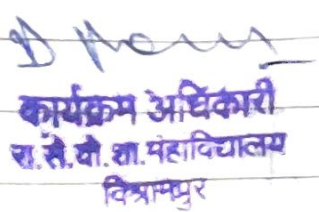 कार्यक्रम अधिकारी
रा. से. यो. शा. महाविद्यालय
विश्रामपुर